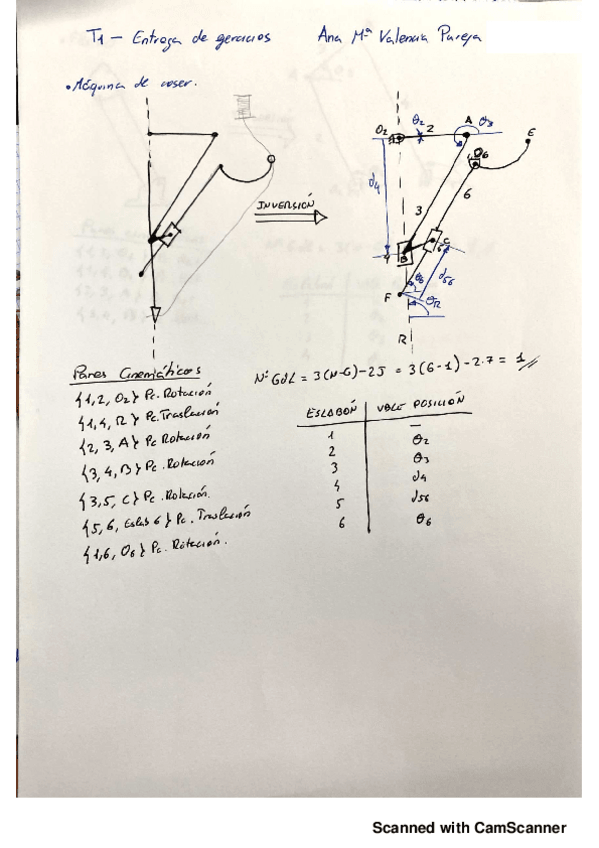 T1 – Entrega de ejercicios Ana Mª Valencia Pareja
• Máquina de coser.
INVERSIÓN
O2 θ2 2 A θ3 E
d4 O6
3 6
4 B C
d56
F θ6 θR
R
Pares Cinemáticos
{1,2, O2} Pc. Rotación
{1,4, R} Pc. Traslación
{2,3, A} Pc Rotación
{3,4, B} Pc. Rotación
{3,5, C} Pc. Rotación.
{5,6, Eslab 6} Pc. Traslación
{1,6, O6} Pc. Rotación.
Nº GdL = 3(N-G)-2J = 3(6-1)-2·7 = 1 //
ESLABÓN VBLE POSICIÓN
1 –
2 θ2
3 θ3
4 d4
5 d56
6 θ6
Scanned with CamScanner